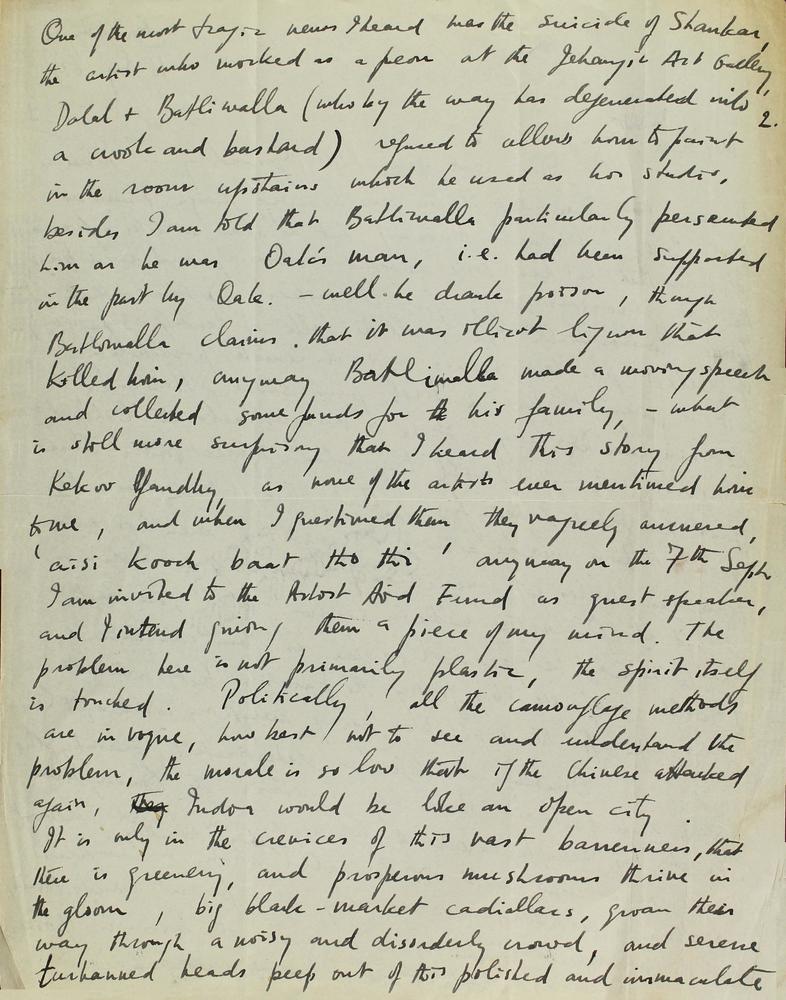 One of the most tragic news I heard was the suicide of Shankar,
the artist who worked as a peon at the Jehangir Art Gallery,
2.
Dalal + Batliwalla (who by the way has degenerated into
a crook and bastard) refused to allow him to paint
in the room upstairs which he used as his studio,
besides I am told that Batliwalla particularly persecuted
him as he was Oak's man, i.e. had been supported
in the past by Oak. – well he drank poison, though
Batliwalla claims that it was illicit liquor that
killed him, anyway Batliwalla made a moving speech
and collected some funds for his family, – what
is still more surprising that I heard this story from
Kekoo Gandhy, as none of the artists ever mentioned him
to me, and when I questioned them they vaguely answered,
'aisi kooch baat tho thi' anyway on the 7th Sept
I am invited to the Artist Aid Fund as guest speaker,
and I intend giving them a piece of my mind. The
problem here is not primarily plastic, the spirit itself
is touched. Politically, all the camouflage methods
are in vogue, how best not to see and understand the
problem, the morale is so low that if the Chinese attacked
again, India would be like an open city.
It is only in the crevices of this vast barrenness, that
there is greenery, and prosperous mushrooms thrive in
the gloom, big black-market cadillacs, groan their
way through a noisy and disorderly crowd, and serene
turbanned heads peep out of this polished and immaculate